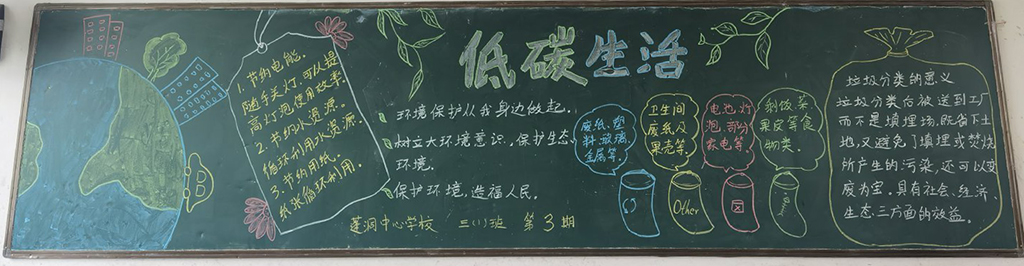 低碳生活
1.节约电能。
随手关灯,可以提
高灯泡使用效率。
2.节约水资源。
循环利用水资源。
3.节约用纸。
纸张循环利用。
环境保护从我身边做起。
树立大环境意识,保护生态
环境。
保护环境,造福人民。
蓬洞中心学校 三(1)班 第3期
废纸、塑
料、玻璃、
金属等。
卫生间
废纸及
果壳等。
电池、灯
泡、部分
家电等。
剩饭、菜
果皮等食
物类。
Other
垃圾分类的意义
垃圾分类后被送到工厂
而不是填埋场,既省下土
地,又避免了填埋或焚烧
所产生的污染,还可以变
废为宝。具有社会、经济、
生态三方面的效益。